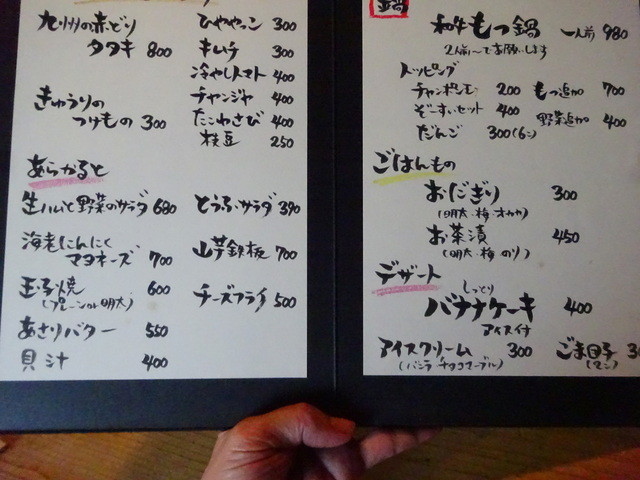 九州の赤どり
タタキ 800
きゅうりの
つけもの 300
ひややっこ 300
キムチ 300
冷やしトマト 400
チャンジャ 400
たこわさび 400
枝豆 250
あらかると
生ハムと野菜のサラダ 680
とうふサラダ 390
海老にんにく
マヨネーズ 700
山芋鉄板 700
玉子焼 600
(プレーンor明太)
チーズフライ 500
あさりバター 550
貝汁 400
鍋
和牛もつ鍋 一人前 980
2人前〜でお願いします
トッピング
チャンポン玉 200 もつ追加 700
ぞーすいセット 400 野菜追加 400
だんご 300(6コ)
ごはんもの
おにぎり 300
(明太・梅・オカカ)
お茶漬 450
(明太・梅・のり)
デザート
しっとり
バナナケーキ 400
アイス付
アイスクリーム 300 ごま団子
(バニラ チョコマーブル) (2コ)